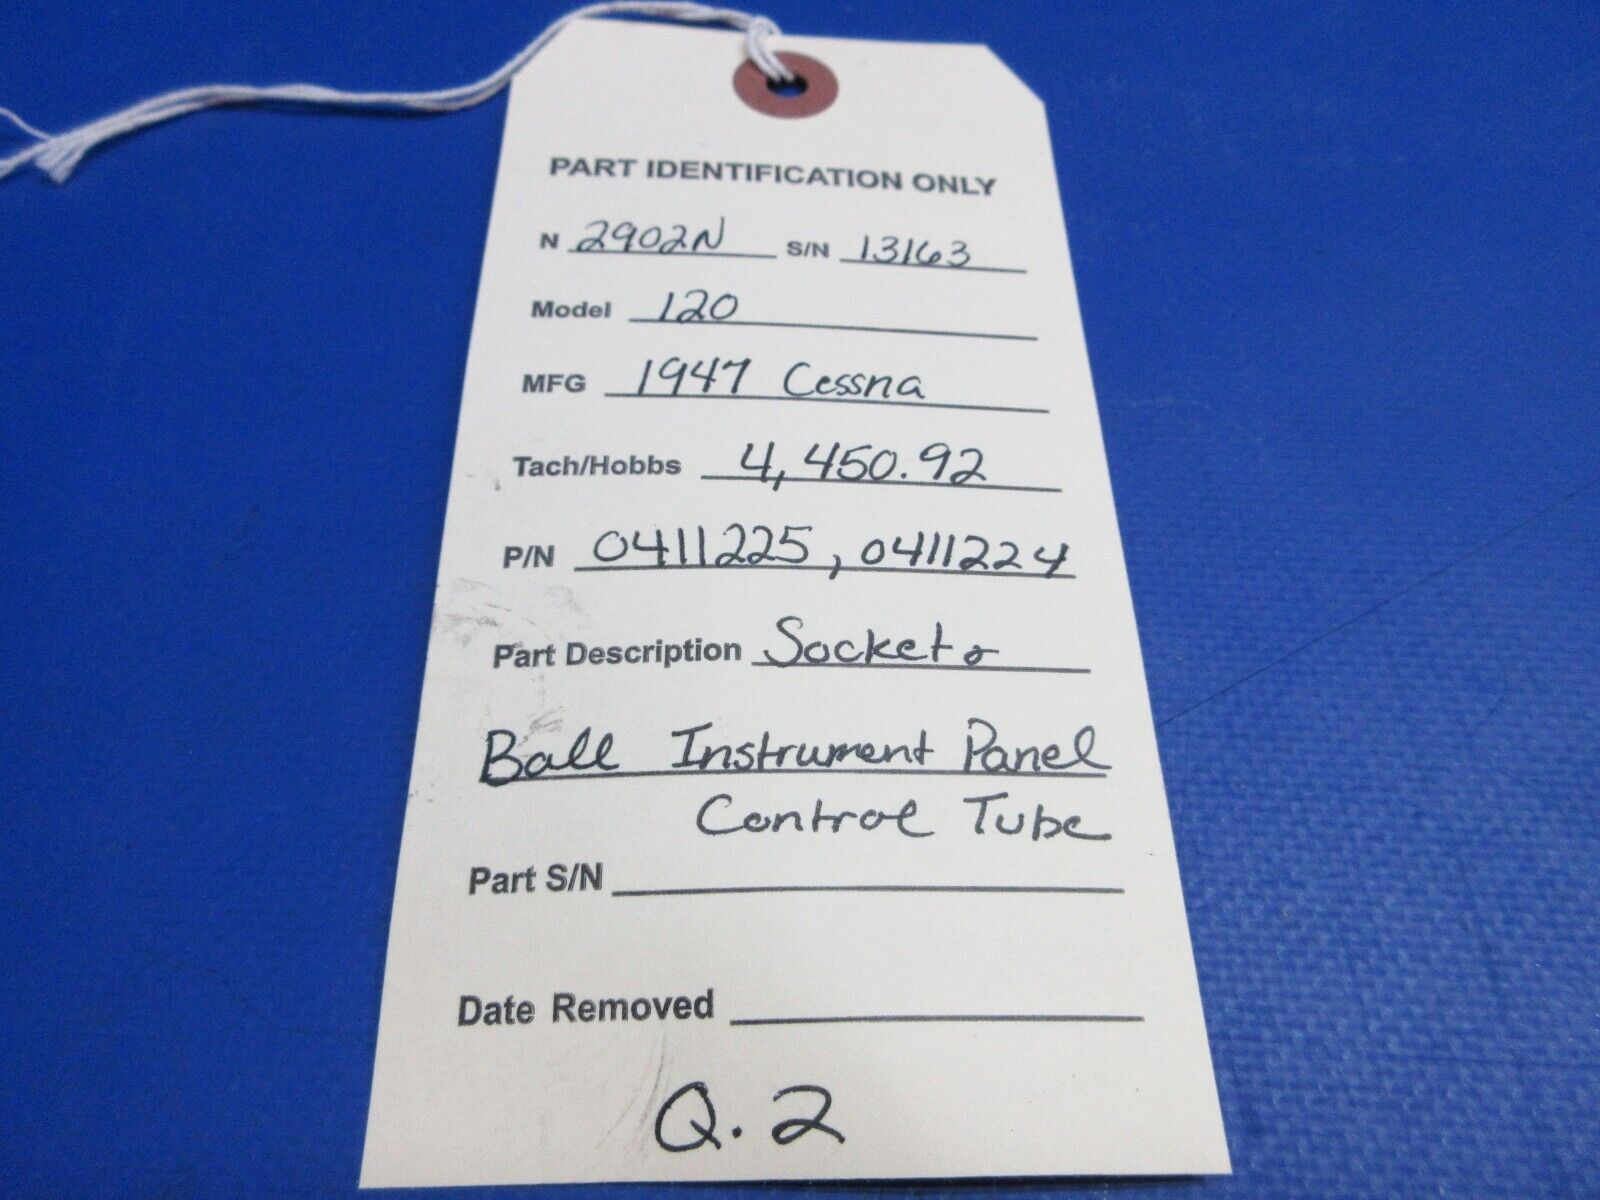 PART IDENTIFICATION ONLY
N 2902N S/N 13163
Model 120
MFG 1947 Cessna
Tach/Hobbs 4,450.92
P/N 0411225, 0411224
Part Description Socket &
Ball Instrument Panel
Control Tube
Part S/N
Date Removed
Q.2